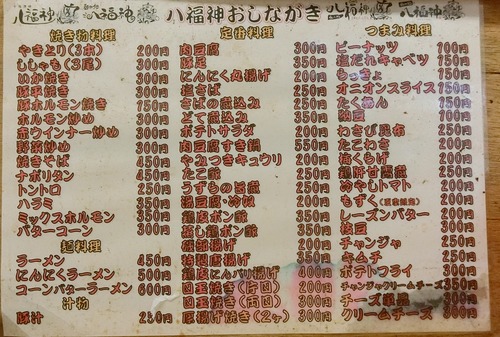 八福神 八福神 八福神おしながき 八福神 八福神
焼き物料理
やきとり(3本) 200円
ししゃも(3尾) 300円
いか焼き 300円
豚平焼き 300円
豚ホルモン焼き 150円
ホルモン炒め 300円
赤ウインナー炒め 300円
野菜炒め 300円
焼きそば 450円
ナポリタン 450円
トントロ 250円
ハラミ 350円
ミックスホルモン 350円
バターコーン 300円
麺料理
ラーメン 450円
にんにくラーメン 500円
コーンバターラーメン 600円
汁物
豚汁 250円
定番料理
肉豆腐 300円
豚足 350円
にんにく丸揚げ 200円
塩さば 250円
さばの煮込み 300円
どて煮込み 350円
ポテトサラダ 200円
肉豆腐すき鍋 550円
やみつきキュウリ 200円
たこ 250円
うずらの 250円
湯豆腐・冷奴 200円
鶏皮ポン酢 300円
蒸し鶏ポン酢 300円
揚げ 200円
特製唐揚げ 350円
鶏皮にんパリ揚げ 400円
目玉焼き(片面) 200円
目玉焼き(両面) 300円
厚揚げ焼き(2ヶ) 300円
つまみ料理
ピーナッツ 100円
塩だれキャベツ 150円
らっきょ 150円
オニオンスライス 150円
たくあん 150円
納豆 100円
わさび昆布 250円
たこわさ 200円
梅くらげ 200円
鶏肝甘露煮 250円
冷やしトマト 250円
もずく 200円
レーズンバター 200円
枝豆 200円
チャンジャ 250円
キムチ 250円
ポテトフライ 300円
チャンジャクリームチーズ 350円
チーズ 200円
クリームチーズ 300円